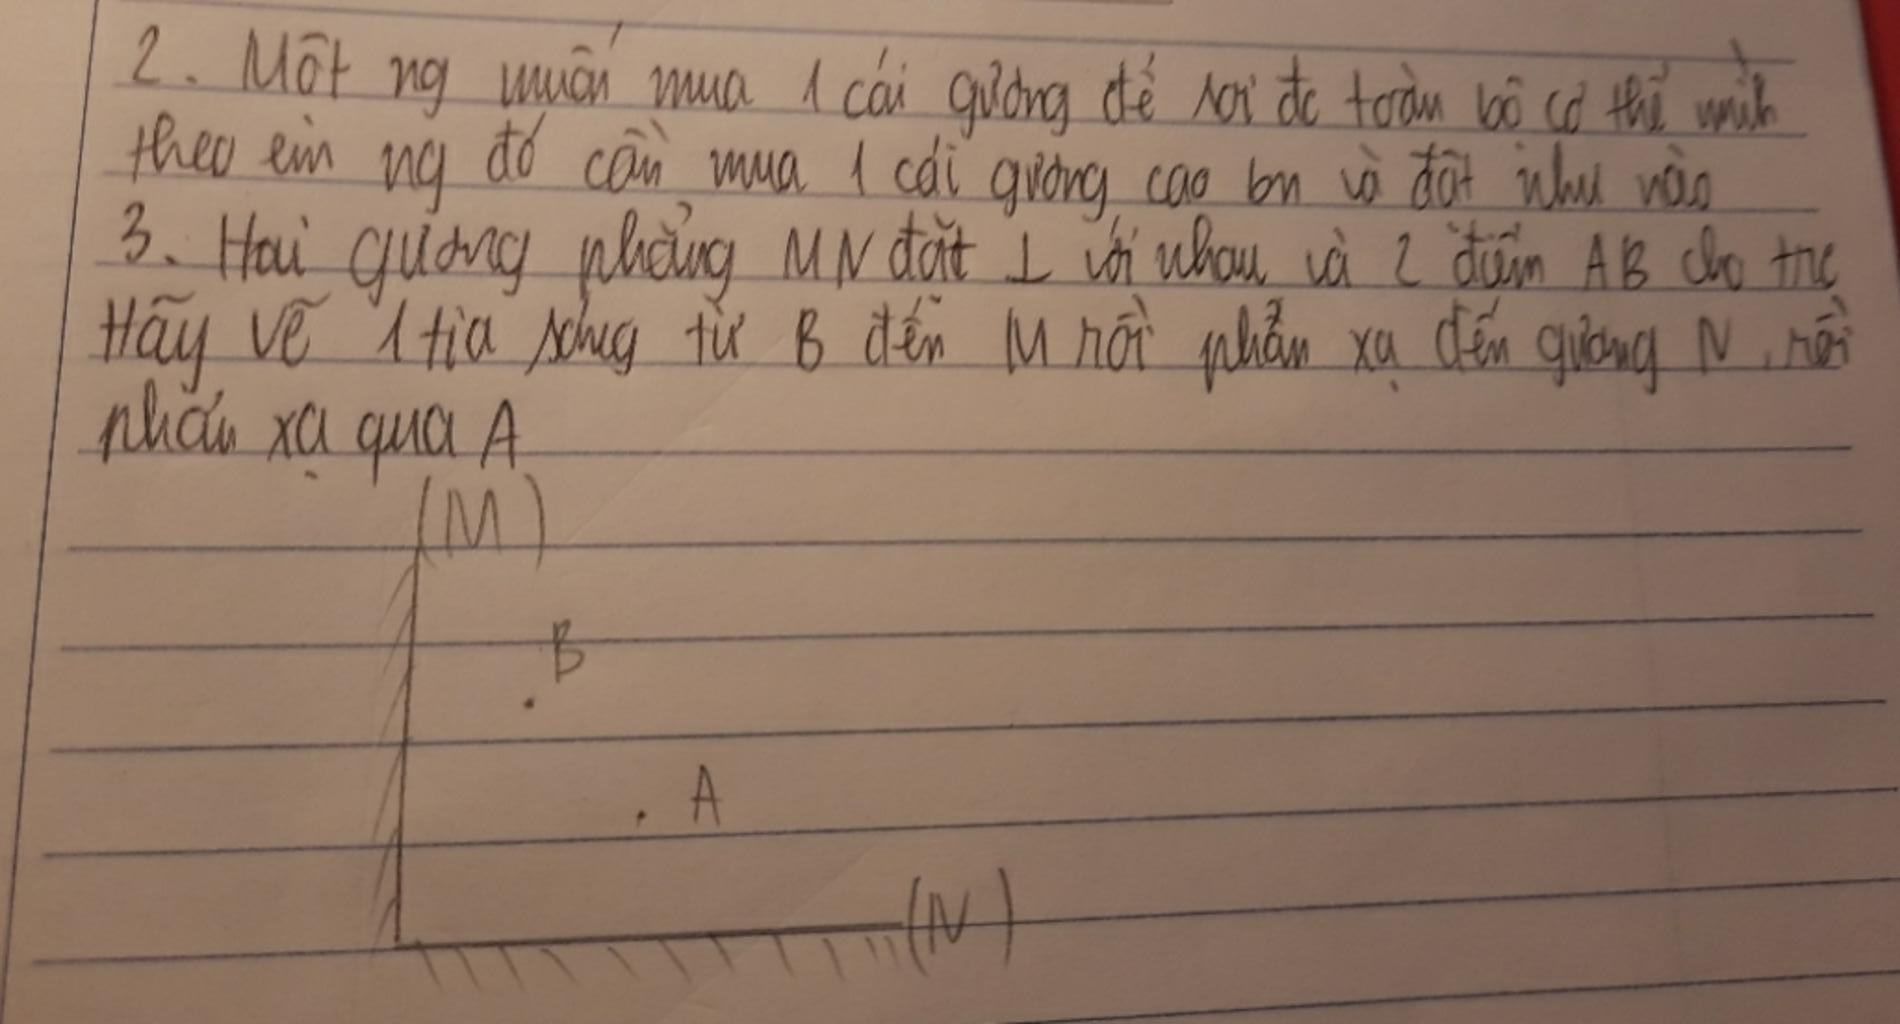 2. Một ng muốn mua 1 cái gương để soi đc toàn bộ cơ thể mình
theo em ng đó cần mua 1 cái gương cao bn và đặt như nào
3. Hai gương phẳng MN đặt ⊥ với nhau và 2 điểm AB cho trc
Hãy vẽ 1 tia sáng từ B đến M rồi phản xạ đến gương N, rồi
phản xạ qua A
(M)
B
A
(N)